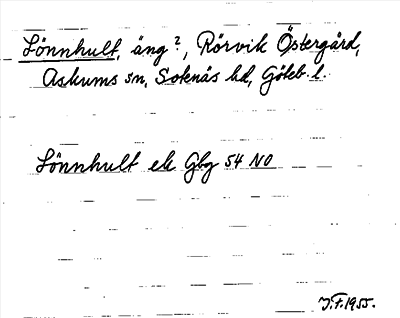 Lönnhult, äng?, Rörvik Östergård,
Askums sn, Sotenäs hd, Göteb. l.
Lönnhult ek Gbg 54 NO
J.F. 1955.